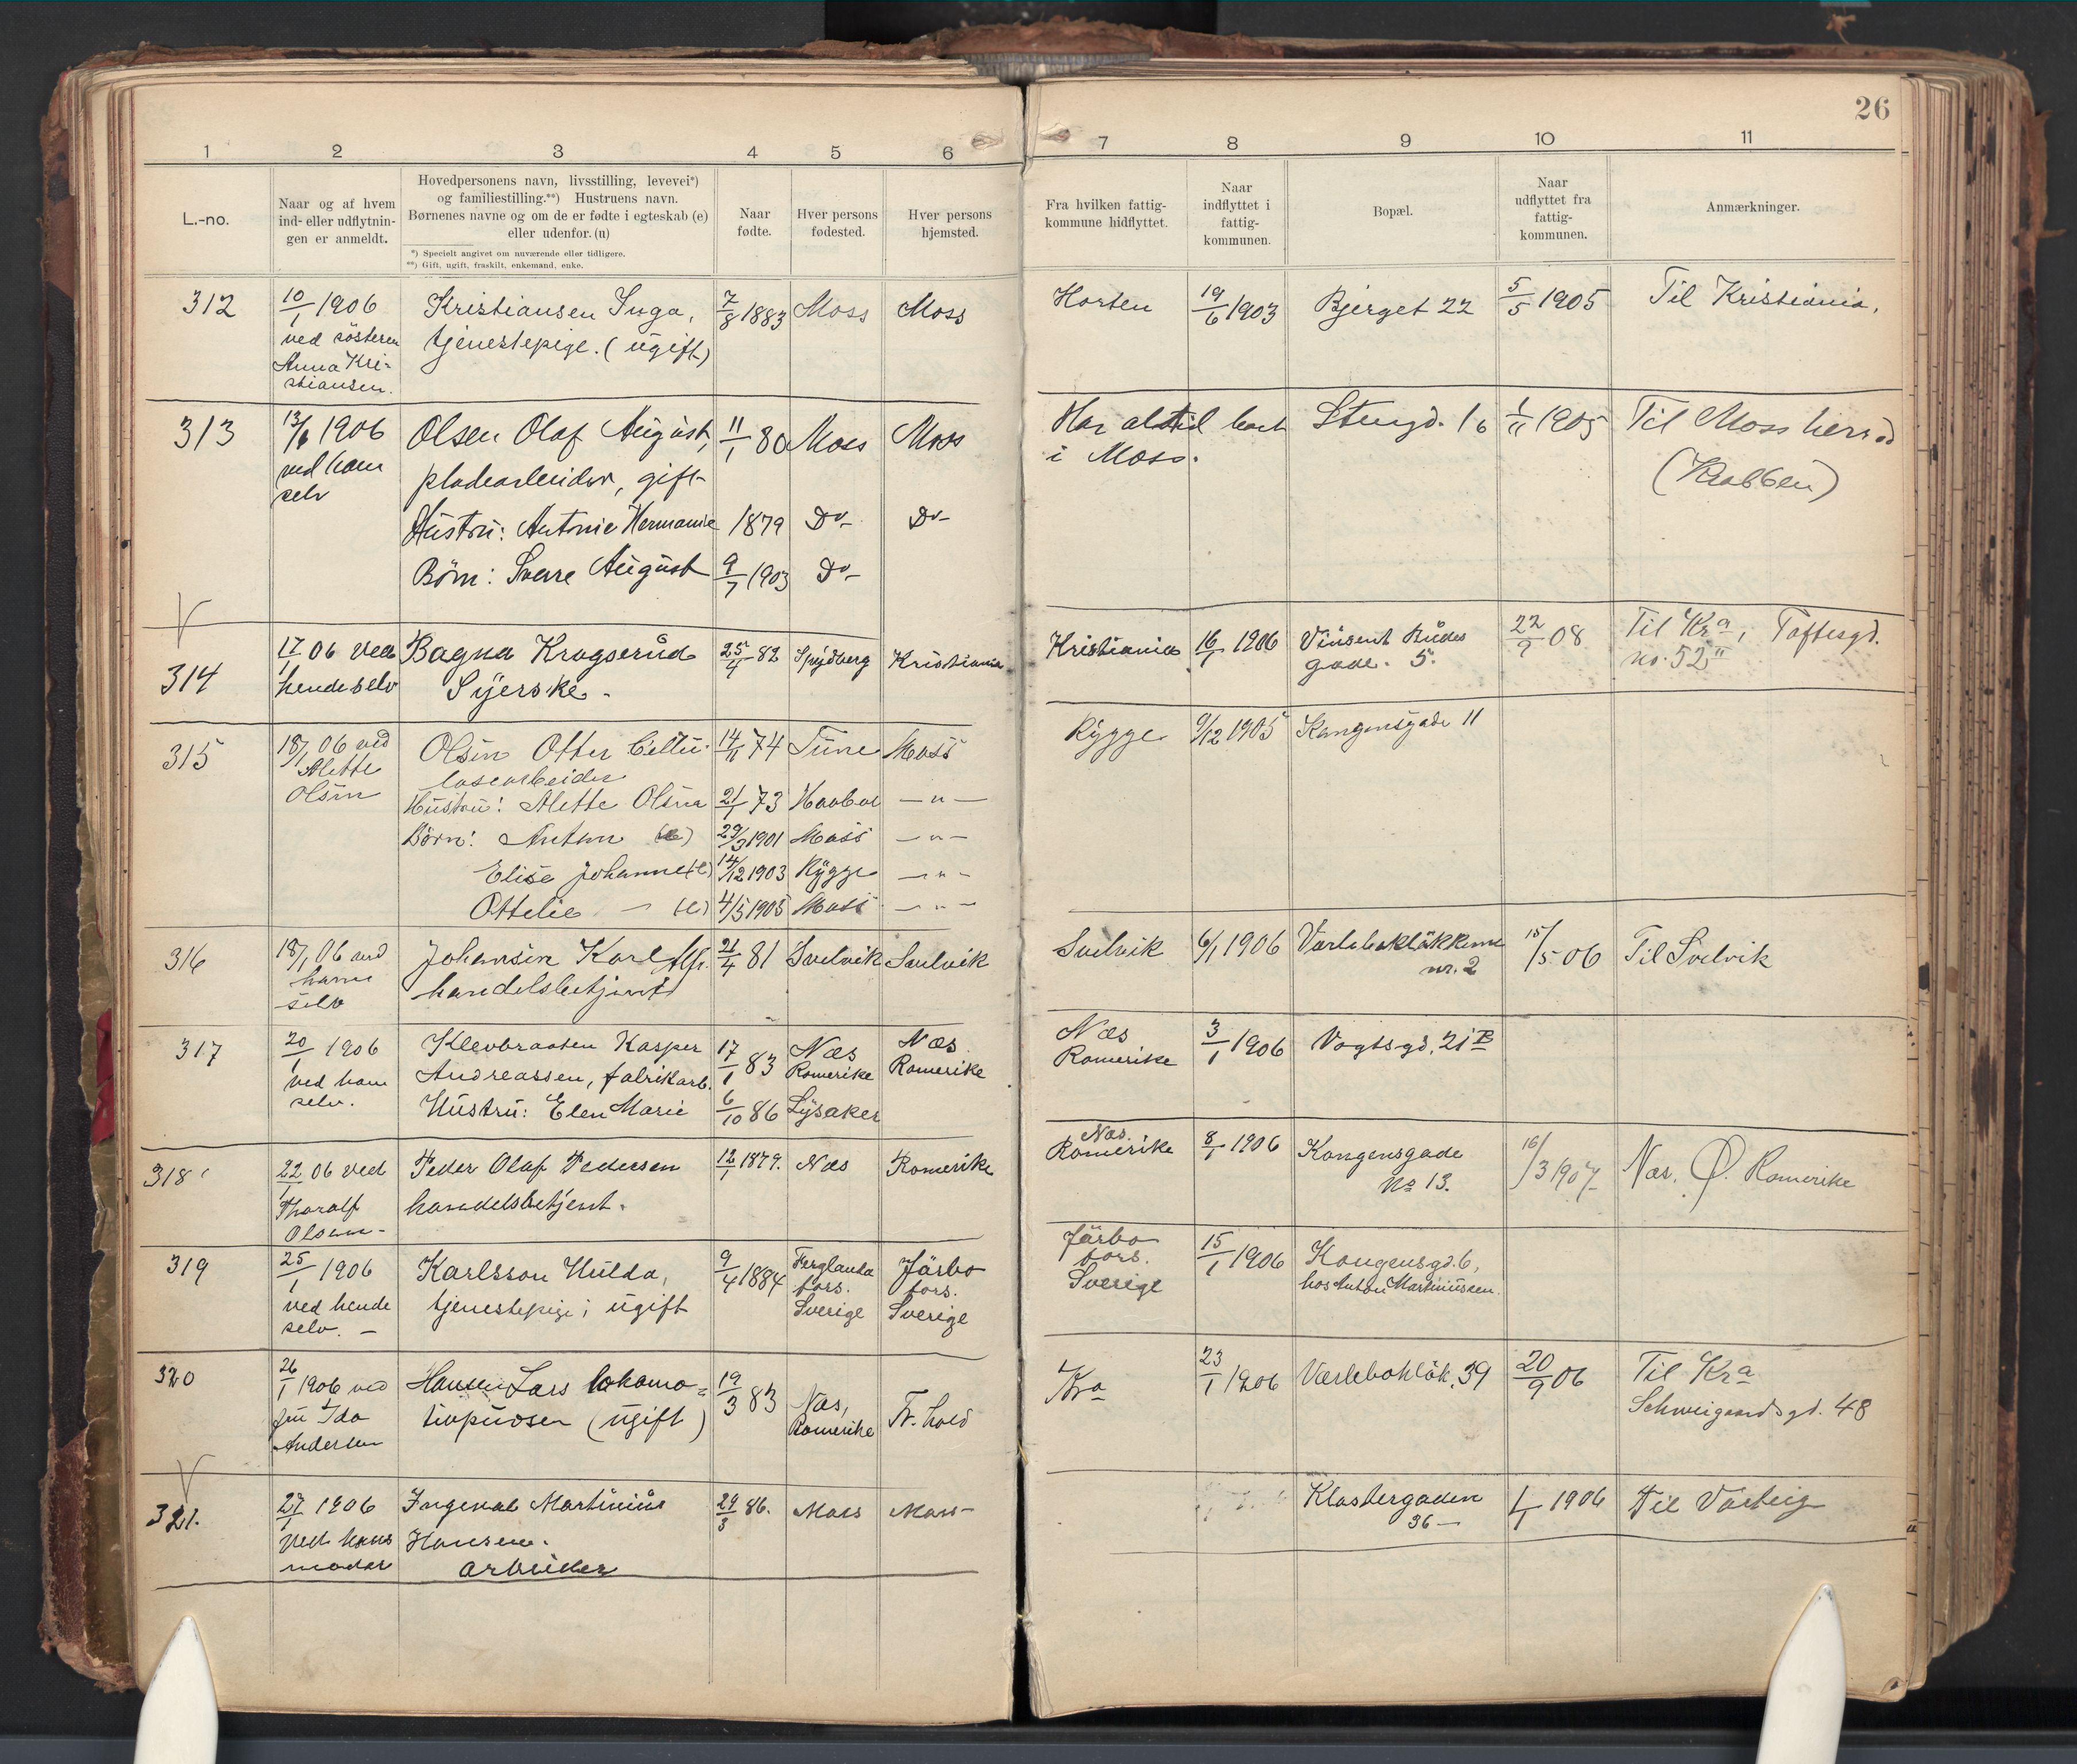 26
1 2 3 4 5 6 7 8 9 10 11
L.-no.
Naar og af hvem
ind- eller udflytnin-
gen er anmeldt.
Hovedpersonens navn, livsstilling, levevei*)
og familiestilling.**) Hustruens navn.
Børnenes navne og om de er fødte i egteskab (e)
eller udenfor. (u)
*) Specielt angivet om nuværende eller tidligere.
**) Gift, ugift, fraskilt, enkemand, enke.
Naar
fødte.
Hver persons
fødested.
Hver persons
hjemsted.
Fra hvilken fattig-
kommune hidflyttet.
Naar
indflyttet i
fattig-
kommunen.
Bopæl.
Naar
udflyttet fra
fattig-
kommunen.
Anmærkninger.
312 10/1 1906 Kristiansen Inga, 7/8 1883 Moss Moss Horten 19/6 1903 Bjerget 22 5/5 1905 Til Kristiania.
ved søsteren tjenestepige. (ugift)
Anna Kri-
stiansen.
313 13/1 1906 Olsen Olaf August, 11/1 80 Moss Moss Har altid boet Stengd. 16 1/11 1905 Til Moss herred
ved ham pladearbeider, gift i Moss. (Krabben)
selv
Hustru: Antonie Hermanie 1879 Do- Do-
Børn: Sverre August 9/7 1903 Do-
314 17/1 06 ved Bagna Krogserud 25/4 82 Spydberg Kristiania Kristiania 16/1 1906 Vinsent Budes 22/9 08 Til Kra, Toftesgd.
hende selv Syerske. gade. 5. no. 52 II
315 18/1 06 ved Olsen Otter Cellu- 14/11 74 Tune Moss Rygge 9/12 1905 Kongensgade 11
Alette losearbeider
Olsen Hustru: Alette Olsen 21/1 73 Haabøl — " —
Børn: Anton (e) 29/3 1901 Moss — " —
Elise Johanne (e) 14/12 1903 Rygge — " —
Ottelie — (e) 4/5 1905 Moss — " —
316 18/1 06 ved Johansen Karl Alf. 21/4 81 Svelvik Svelvik Svelvik 6/1 1906 Varlebakløkkene 15/5 06 Til Svelvik
ham handelsbetjent nr. 2
selv
317 20/1 1906 Klevbraaten Kasper 17/1 83 Næs Næs Næs 3/1 1906 Vogtsgd. 21 B
ved ham Andreassen, fabrikarb. Romerike Romerike Romerike
selv. Hustru: Elen Marie 6/10 86 Lysaker
318 22/1 06 ved Peder Olaf Pedersen 12/1 1879. Næs Romerike Næs. 8/1 1906 Kongensgade 16/3 1907 Næs. Ø. Romerike
Thoralf handelsbetjent. Romerike No 13.
Olsen-
319 25/1 1906 Karlsson Hulda, 9/4 1884 Ferglanda Järbo Järbo 15/1 1906 Kongensgd. 6,
ved hende tjenestepige; ugift fors. fors. fors. hos Anton Martiniussen.
selv. — Sverige Sverige Sverige
320 26/1 1906 ved Hansen Lars lokomo= 19/3 83 Næs, Fr. hald Kra 23/1 1906 Værlebokløk. 39 20/9 06 Til Kra
fru Ida tivpudser (ugift) Romerike Schweigaardsgd. 48
Andersen
321. 27/1 1906 Ingeval Martinius 29/3 86. Moss Moss- Klostergaden 1/1 1906 Til Varteig
Ved hans Hansen. 36 —
moder arbeider